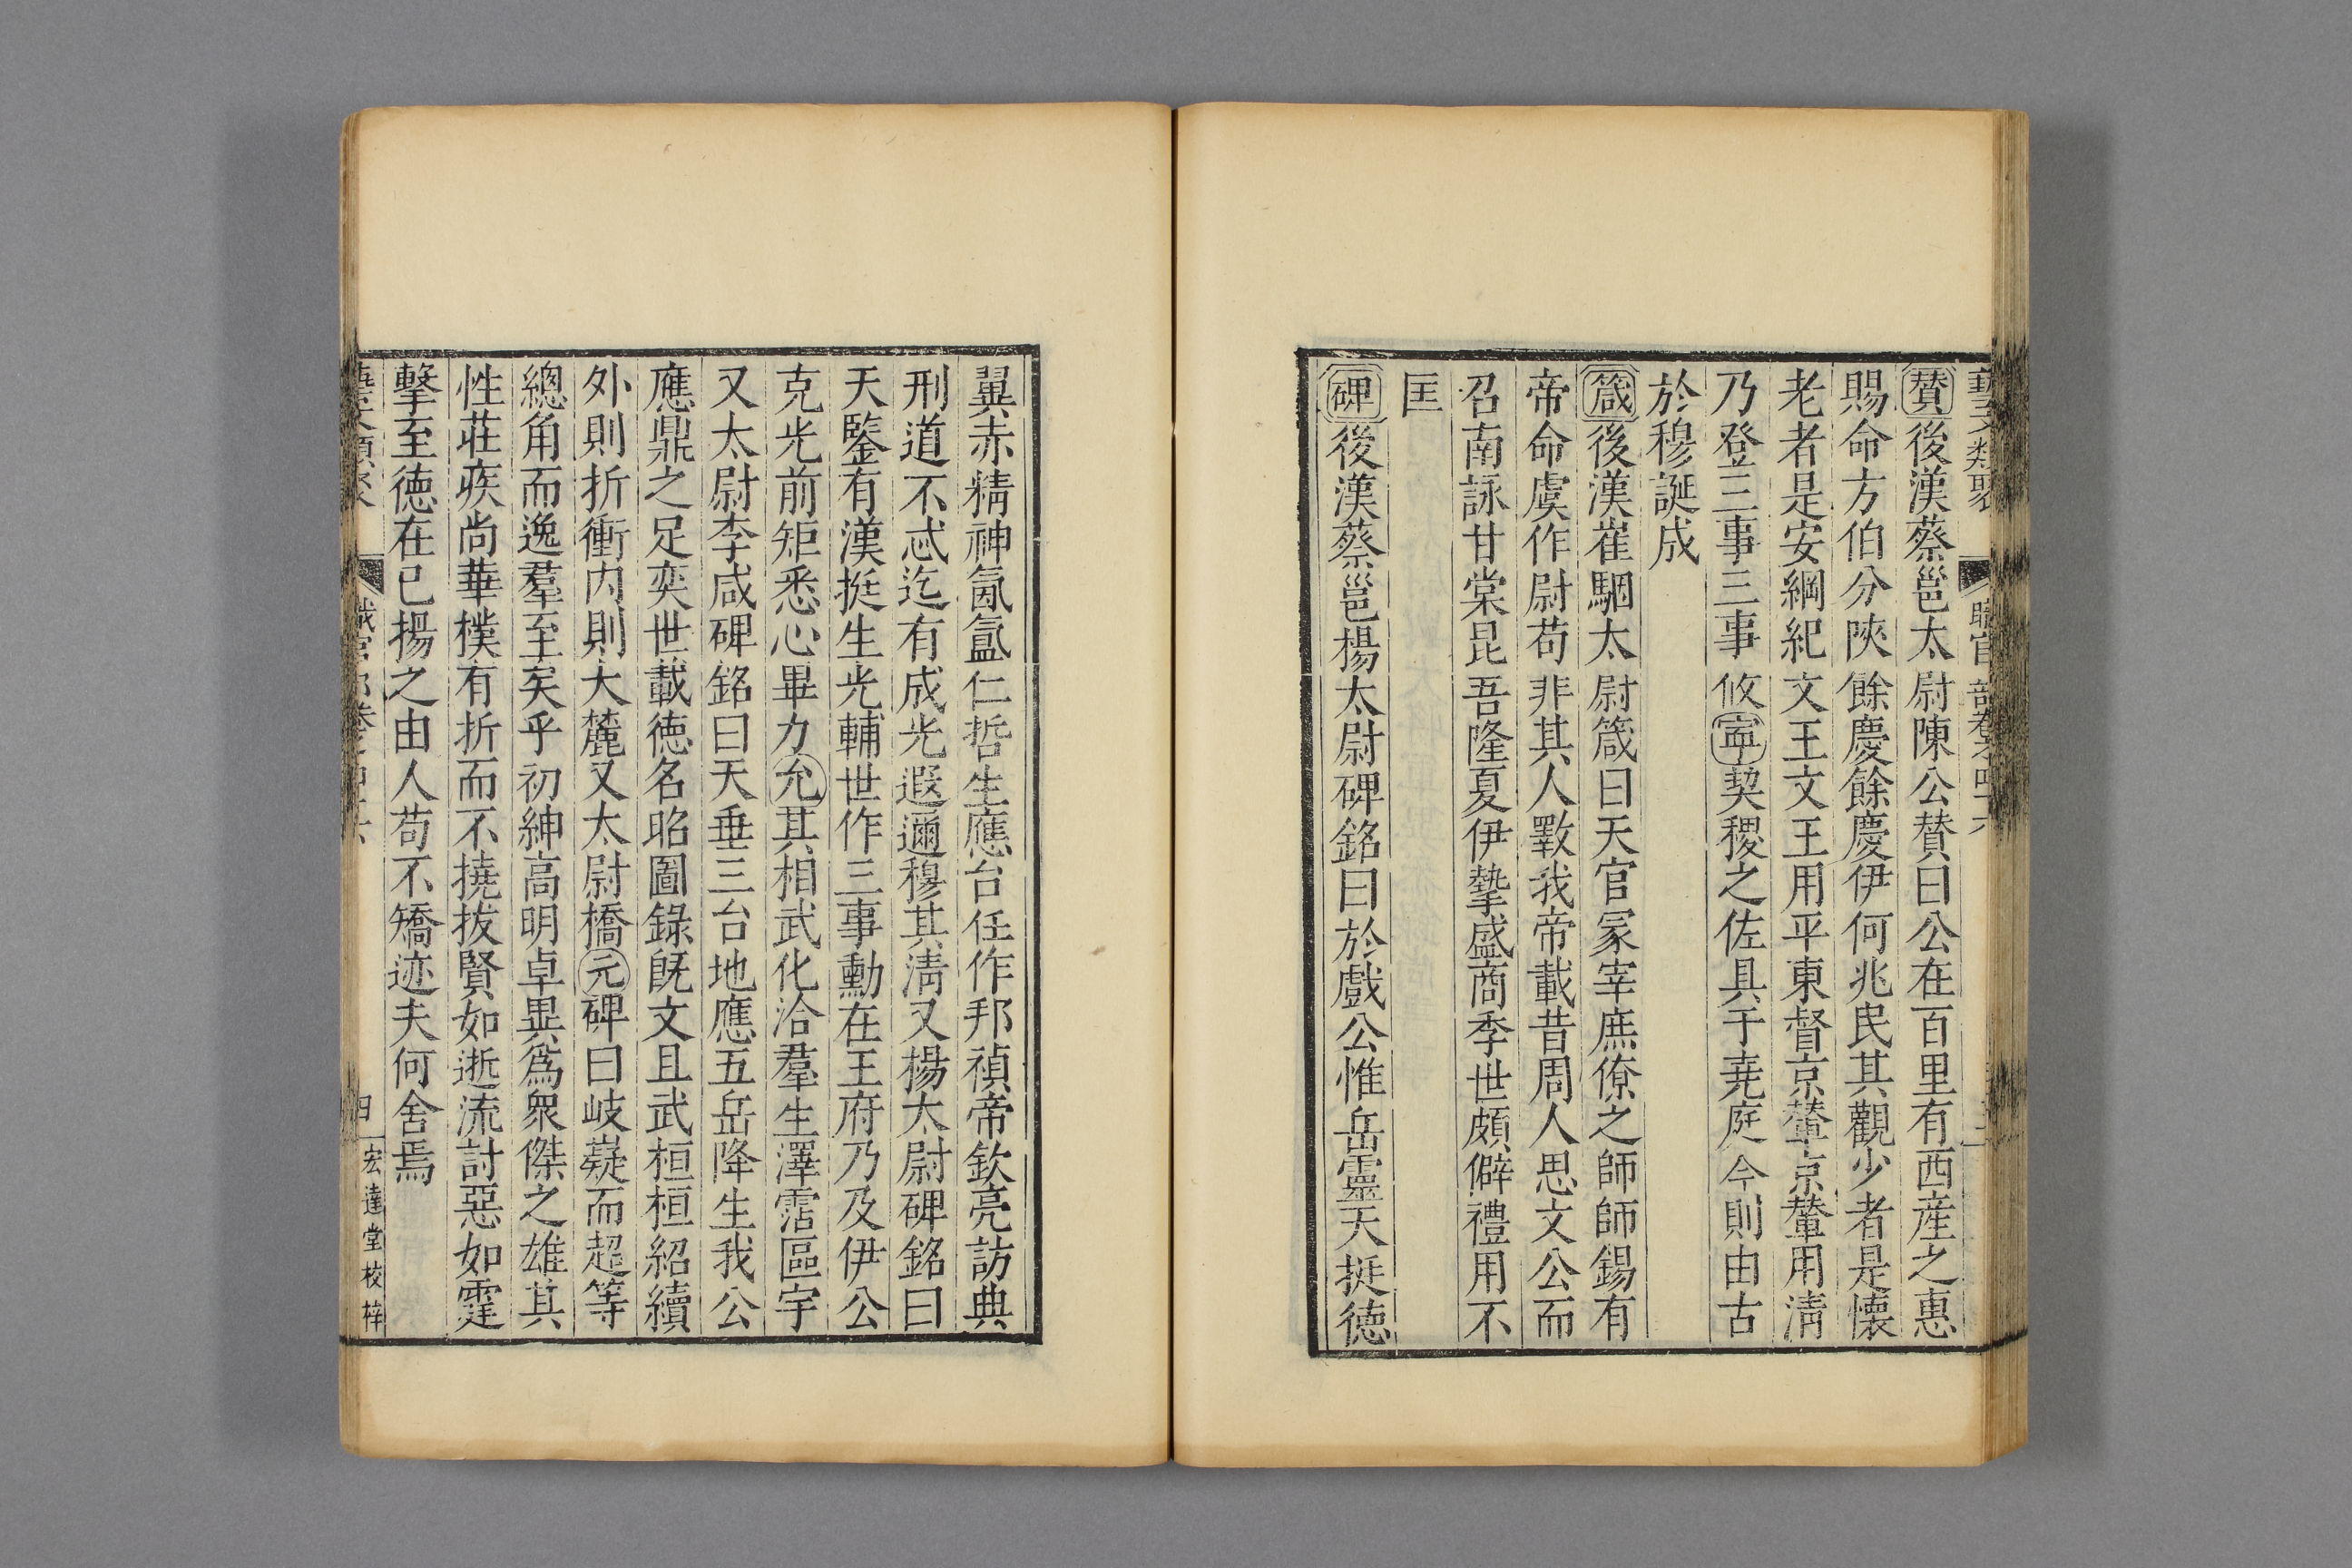 藝文類聚 職官部卷之四十六
贊後漢蔡邕太尉陳公贊曰公在百里有西産之惠
賜命方伯分陝餘慶餘慶伊何兆民其觀少者是懷
老者是安綱紀文王文王用平東督京輦京輦用清
乃登三事三事攸寧契稷之佐具于堯庭今則由古
於穆誕成
箴後漢崔駰太尉箴曰天官冢宰庶僚之師師錫有
帝命虞作尉苟非其人斁我帝載昔周人思文公而
召南詠甘棠昆吾隆夏伊摯盛商季世頗僻禮用不
匡
碑後漢蔡邕楊太尉碑銘曰於戲公惟岳靈天挺德
翼赤精神氤氳仁哲生應台任作邦禎帝欽亮訪典
刑道不忒迄有成光遐邇穆其清又揚太尉碑銘曰
天鑒有漢挺生光輔世作三事勳在王府乃及伊公
克光前矩悉心畢力允其相武化洽羣生澤霑區宇
又太尉李咸碑銘曰天垂三台地應五岳降生我公
應鼎之足奕世載德名昭圖錄旣文且武桓桓紹續
外則折衝內則大麓又太尉橋元碑曰岐嶷而超等
總角而逸羣至矣乎初紳高明卓異爲衆傑之雄其
性莊疾尚華樸有折而不撓拔賢如逝流討惡如霆
擊至德在已揚之由人苟不矯迹夫何舍焉
藝文類聚 職官部卷之四十六 四 宏達堂校梓